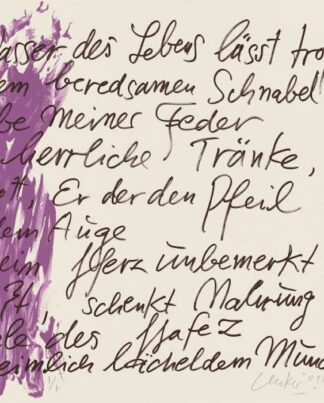 Wasser des Lebens lässt tro
em beredsamen Schnabel
be meines Feder
herrliche Tränke,
tt, Er der den Pfeil
dem Auge
eim Herz unbemerkt
zt, schenkt Nahrung
ele des Hafez
heimlich lächeldem Mund
1/1